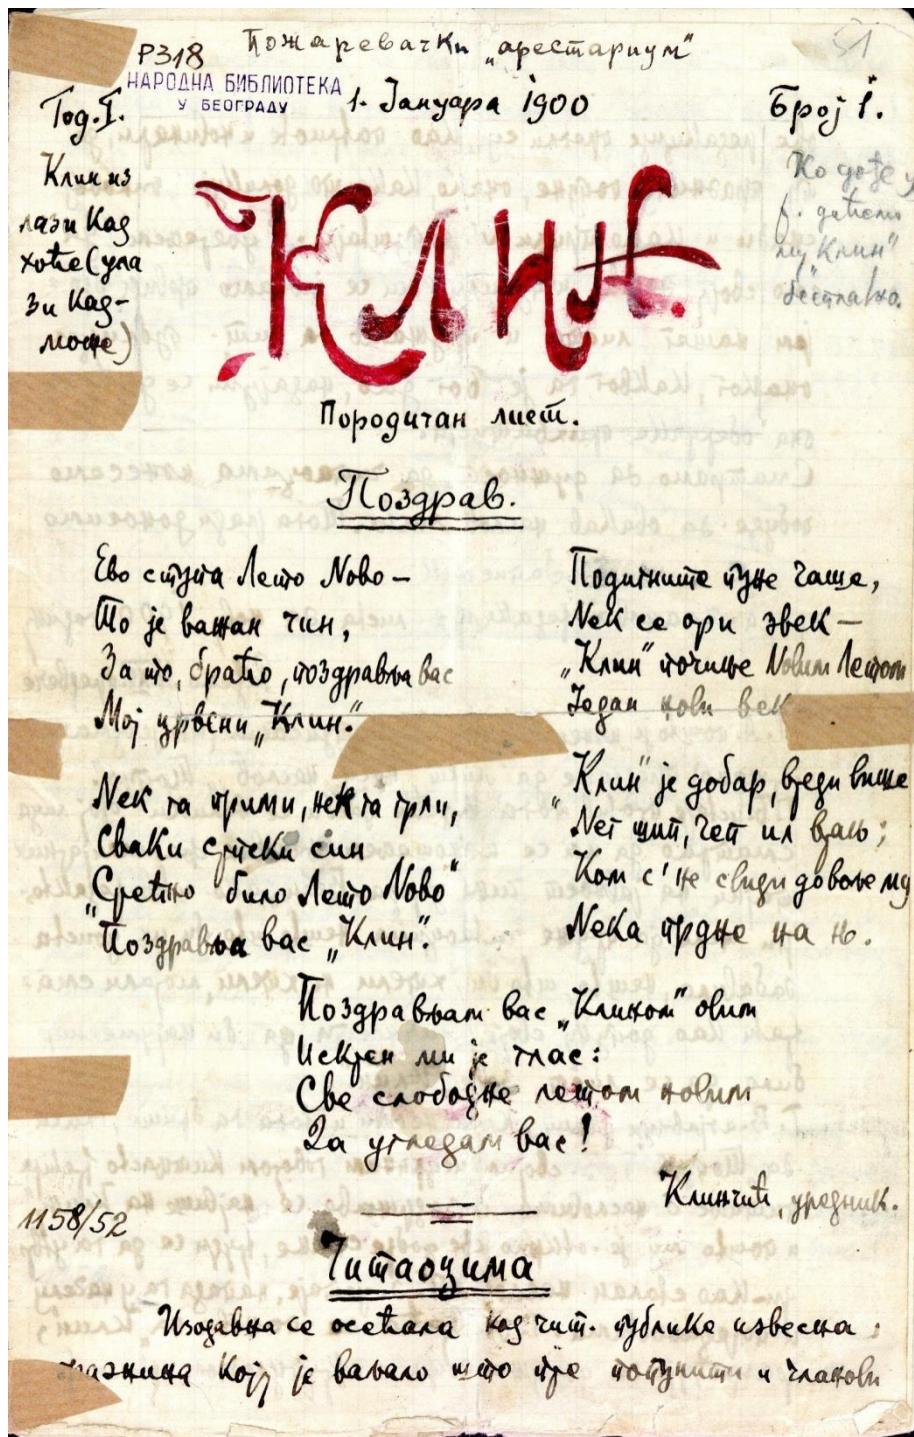 Пожаревачки „арестариум"
51
Р318
НАРОДНА БИБЛИОТЕКА
У БЕОГРАДУ
Год. I.
1. Јануара 1900
Број 1.
Клин из
лази кад
хоће (ула
зи кад-
може)
Ко дође у
му „Клин"
бесплатно.
КЛИН.
Породичан лист.
Поздрав.
Ево ступа Лето Ново —
То је важан чин,
За то, браћо, поздравља вас
Мој црвени „Клин".
Нек га прими, нек га грли,
Сваки српски син
„Срећно било Лето Ново"
Поздравља вас „Клин".
Подигните пуне чаше,
Нек се ори звек —
„Клин" почиње Новим Летом
Један нови век
„Клин" је добар, вреди више
Нег
Ком с' не свиди довољ му
Нека прдне на њ.
Поздрављам вас „Клином" овим
Искрен ми је глас:
Све слободне летом новим
Да угледам вас!
Клинчић, уредник.
1158/52
Читаоцима
Изодавна се осећала код чит. публике извесна
празнина коју је ваљало што пре попунити и чланови